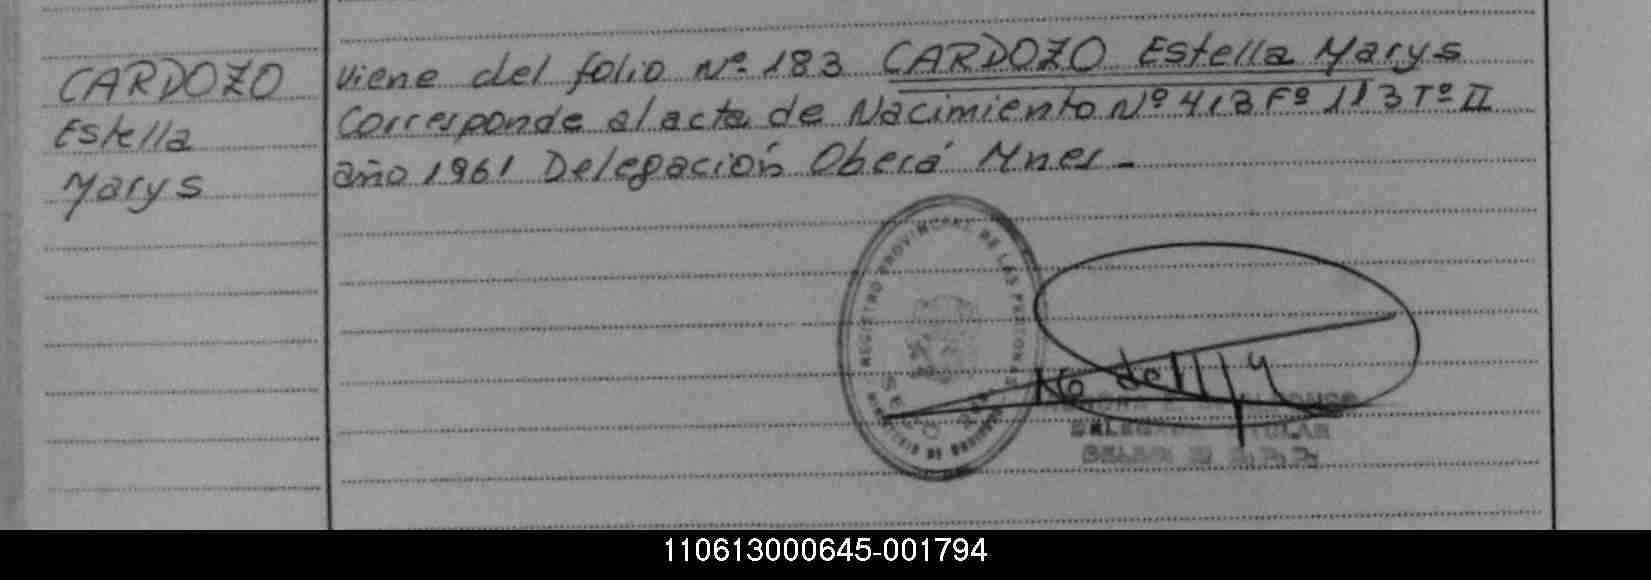 CARDOZO
Estella
Marys
viene del folio Nº 183 CARDOZO Estella Marys
Corresponde al acta de Nacimiento Nº 413 Fº 113 Tº II
año 1961 Delegación Oberá Mnes.-
REGISTRO PROVINCIAL DE LAS PERSONAS
110613000645-001794